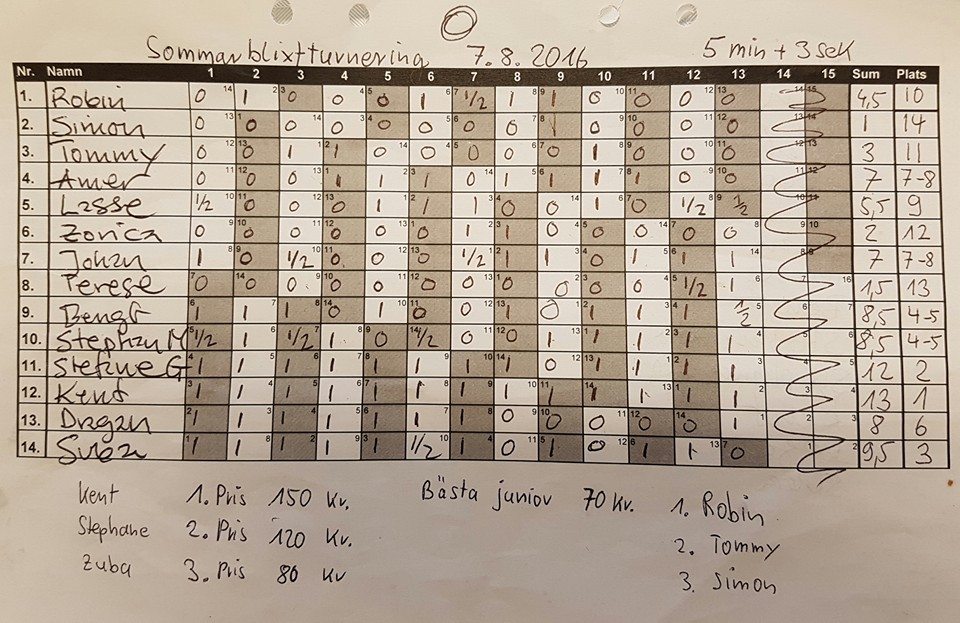 Sommarblixtturnering 7.8.2016 5 min + 3 sek
Nr. Namn 1 2 3 4 5 6 7 8 9 10 11 12 13 14 15 Sum Plats
1. Robin 0 1 0 0 0 1 1/2 1 1 0 0 0 0 4,5 10
2. Simon 0 0 0 0 0 0 0 0 1 0 0 0 0 1 14
3. Tommy 0 0 1 1 0 0 0 0 0 1 0 0 0 3 11
4. Amer 0 0 0 1 1 1 0 1 1 1 1 0 0 7 7-8
5. Lasse 1/2 0 0 0 1 1 1 0 0 1 0 1/2 1/2 5,5 9
6. Zorica 0 0 0 0 0 0 1 1 0 0 0 0 0 2 12
7. Johan 1 0 1/2 0 0 0 1/2 1 1 0 1 1 1 7 7-8
8. Terese 0 0 0 0 0 0 0 0 0 0 0 1/2 1 1,5 13
9. Bengt 1 1 1 0 1 0 0 1 0 1 1 1 1/2 8,5 4-5
10. Stephan M 1/2 1 1/2 1 0 1/2 0 0 1 1 1 1 1 8,5 4-5
11. Stefane G 1 1 1 1 1 1 1 1 0 1 1 1 1 12 2
12. Kent 1 1 1 1 1 1 1 1 1 1 1 1 1 13 1
13. Dragan 1 1 1 1 1 1 1 0 0 0 0 0 1 8 6
14. 1 1 1 1 1 1/2 1 0 1 0 1 1 0 9,5 3
Kent 1. Pris 150 Kr. Bästa junior 70 Kr. 1. Robin
Stephane 2. Pris 120 Kr. 2. Tommy
Zuba 3. Pris 80 Kr 3. Simon